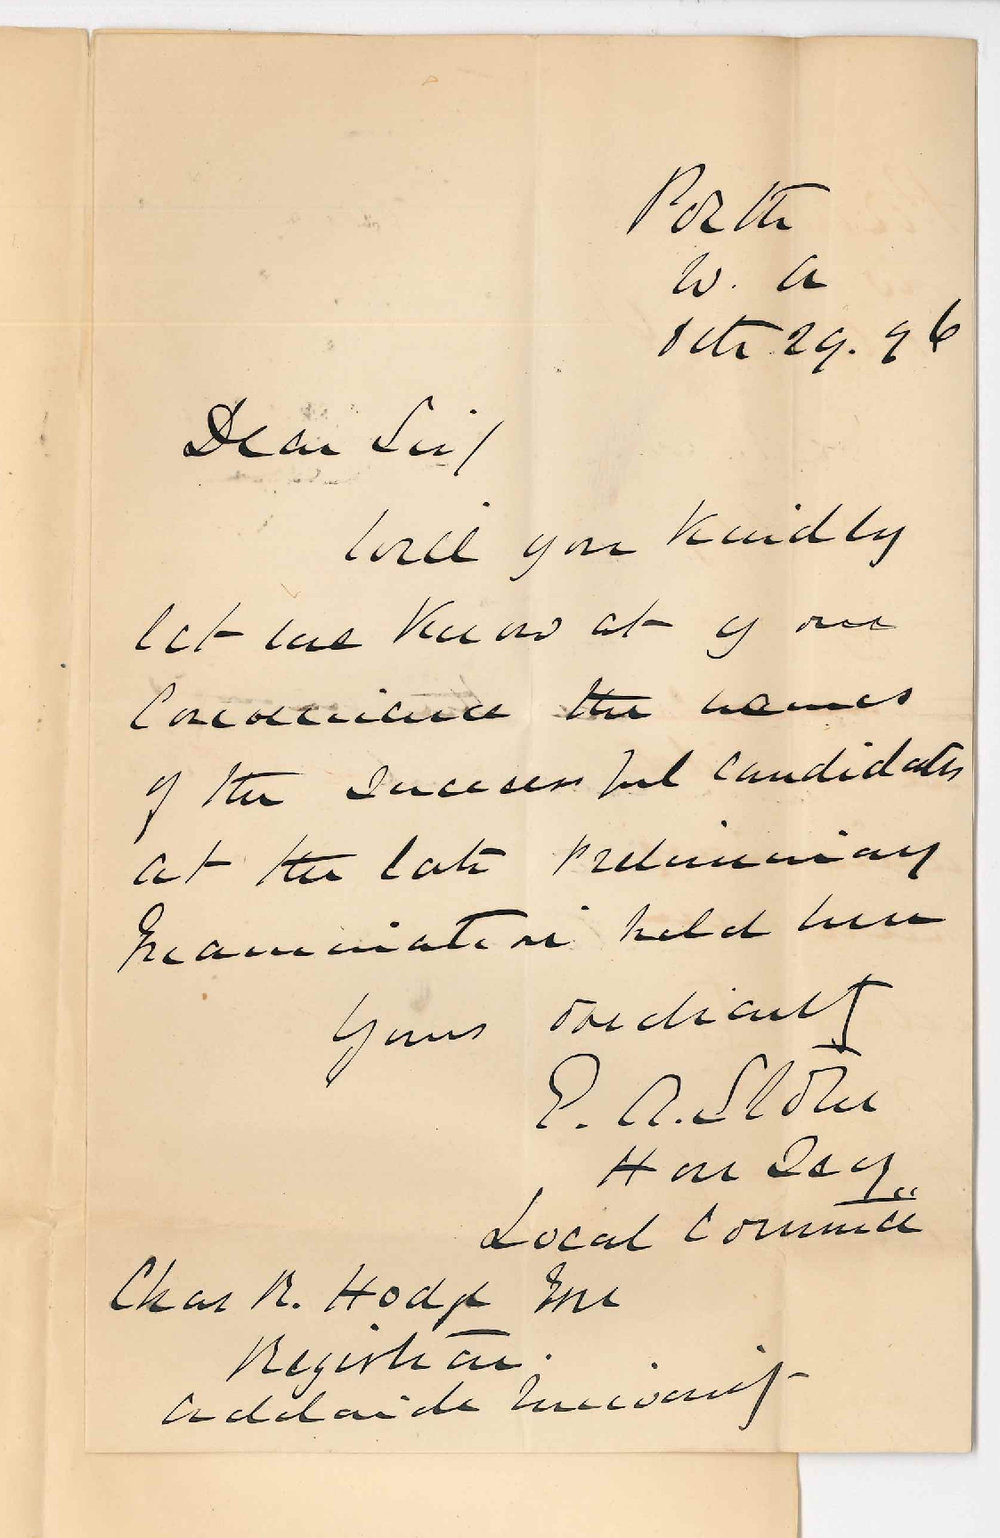 Perth
W. A
Octr 29. 96
Dear Sir/
Will you kindly
let me know at your
Convenience the names
of the Successful Candidates
at the late Preliminary
Examination held here
Yours obediently
E. A. Stone
Hon Secy
Local Committee
Chas R. Hodge Esq
Registrar.
Adelaide University